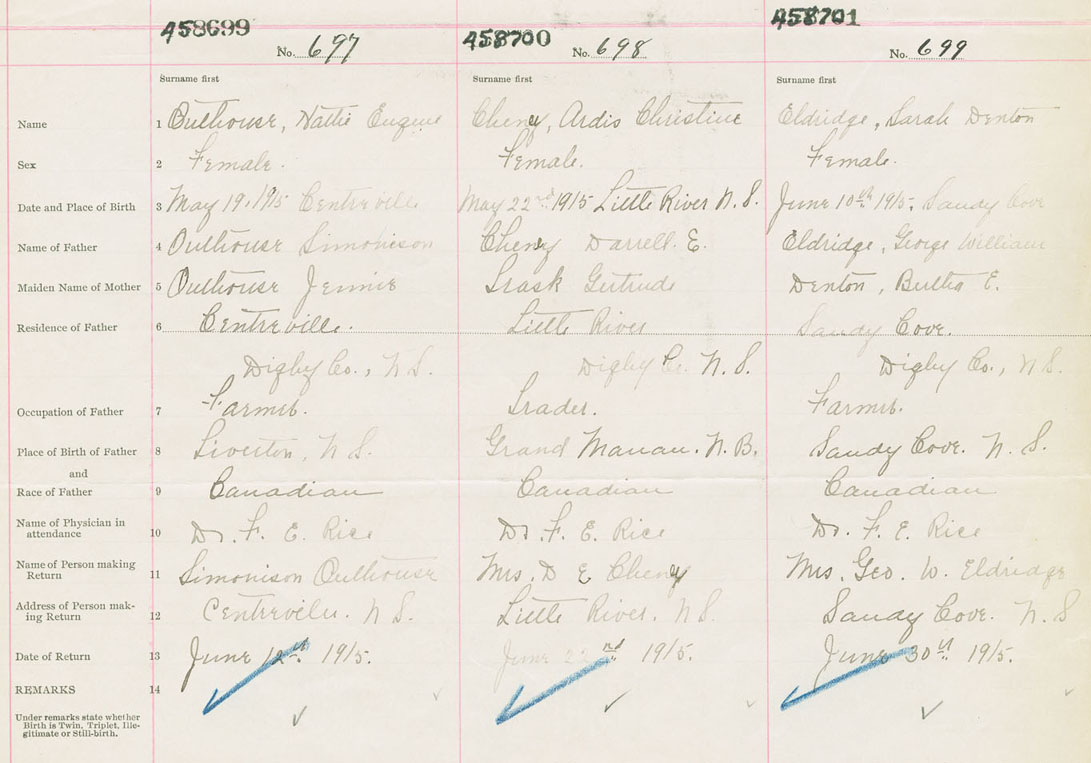 458699
458700
458701
No. 697
No. 698
No. 699
Surname first
Surname first
Surname first
Name 1 Outhouse, Hattie Eugine Cheney, Ardis Christine Eldridge, Sarah Denton
Sex 2 Female. Female. Female.
Date and Place of Birth 3 May 19, 1915 Centreville May 22nd 1915 Little River N.S. June 10th 1915, Sandy Cove
Name of Father 4 Outhouse Simonison Cheney Darrell. E. Eldridge, George William
Maiden Name of Mother 5 Outhouse Jennie Trask Gertrude Denton, Bertha E.
Residence of Father 6 Centreville. Little River Sandy Cove.
Digby Co., N.S. Digby Co. N.S. Digby Co., N.S.
Occupation of Father 7 Farmer. Trader. Farmer.
Place of Birth of Father 8 Tiverton, N.S. Grand Manan. N.B. Sandy Cove. N.S.
and
Race of Father 9 Canadian Canadian Canadian
Name of Physician in
attendance 10 Dr. F. E. Rice Dr. F. E. Rice Dr. F. E. Rice
Name of Person making
Return 11 Simonison Outhouse Mrs. D E Cheney Mrs. Geo. W. Eldridge
Address of Person mak-
ing Return 12 Centreville. N.S. Little River. N.S. Sandy Cove. N.S
Date of Return 13 June 1915. June 1915. June 30st 1915.
REMARKS 14
Under remarks state whether
Birth is Twin, Triplet, Ille-
gitimate or Still-birth.